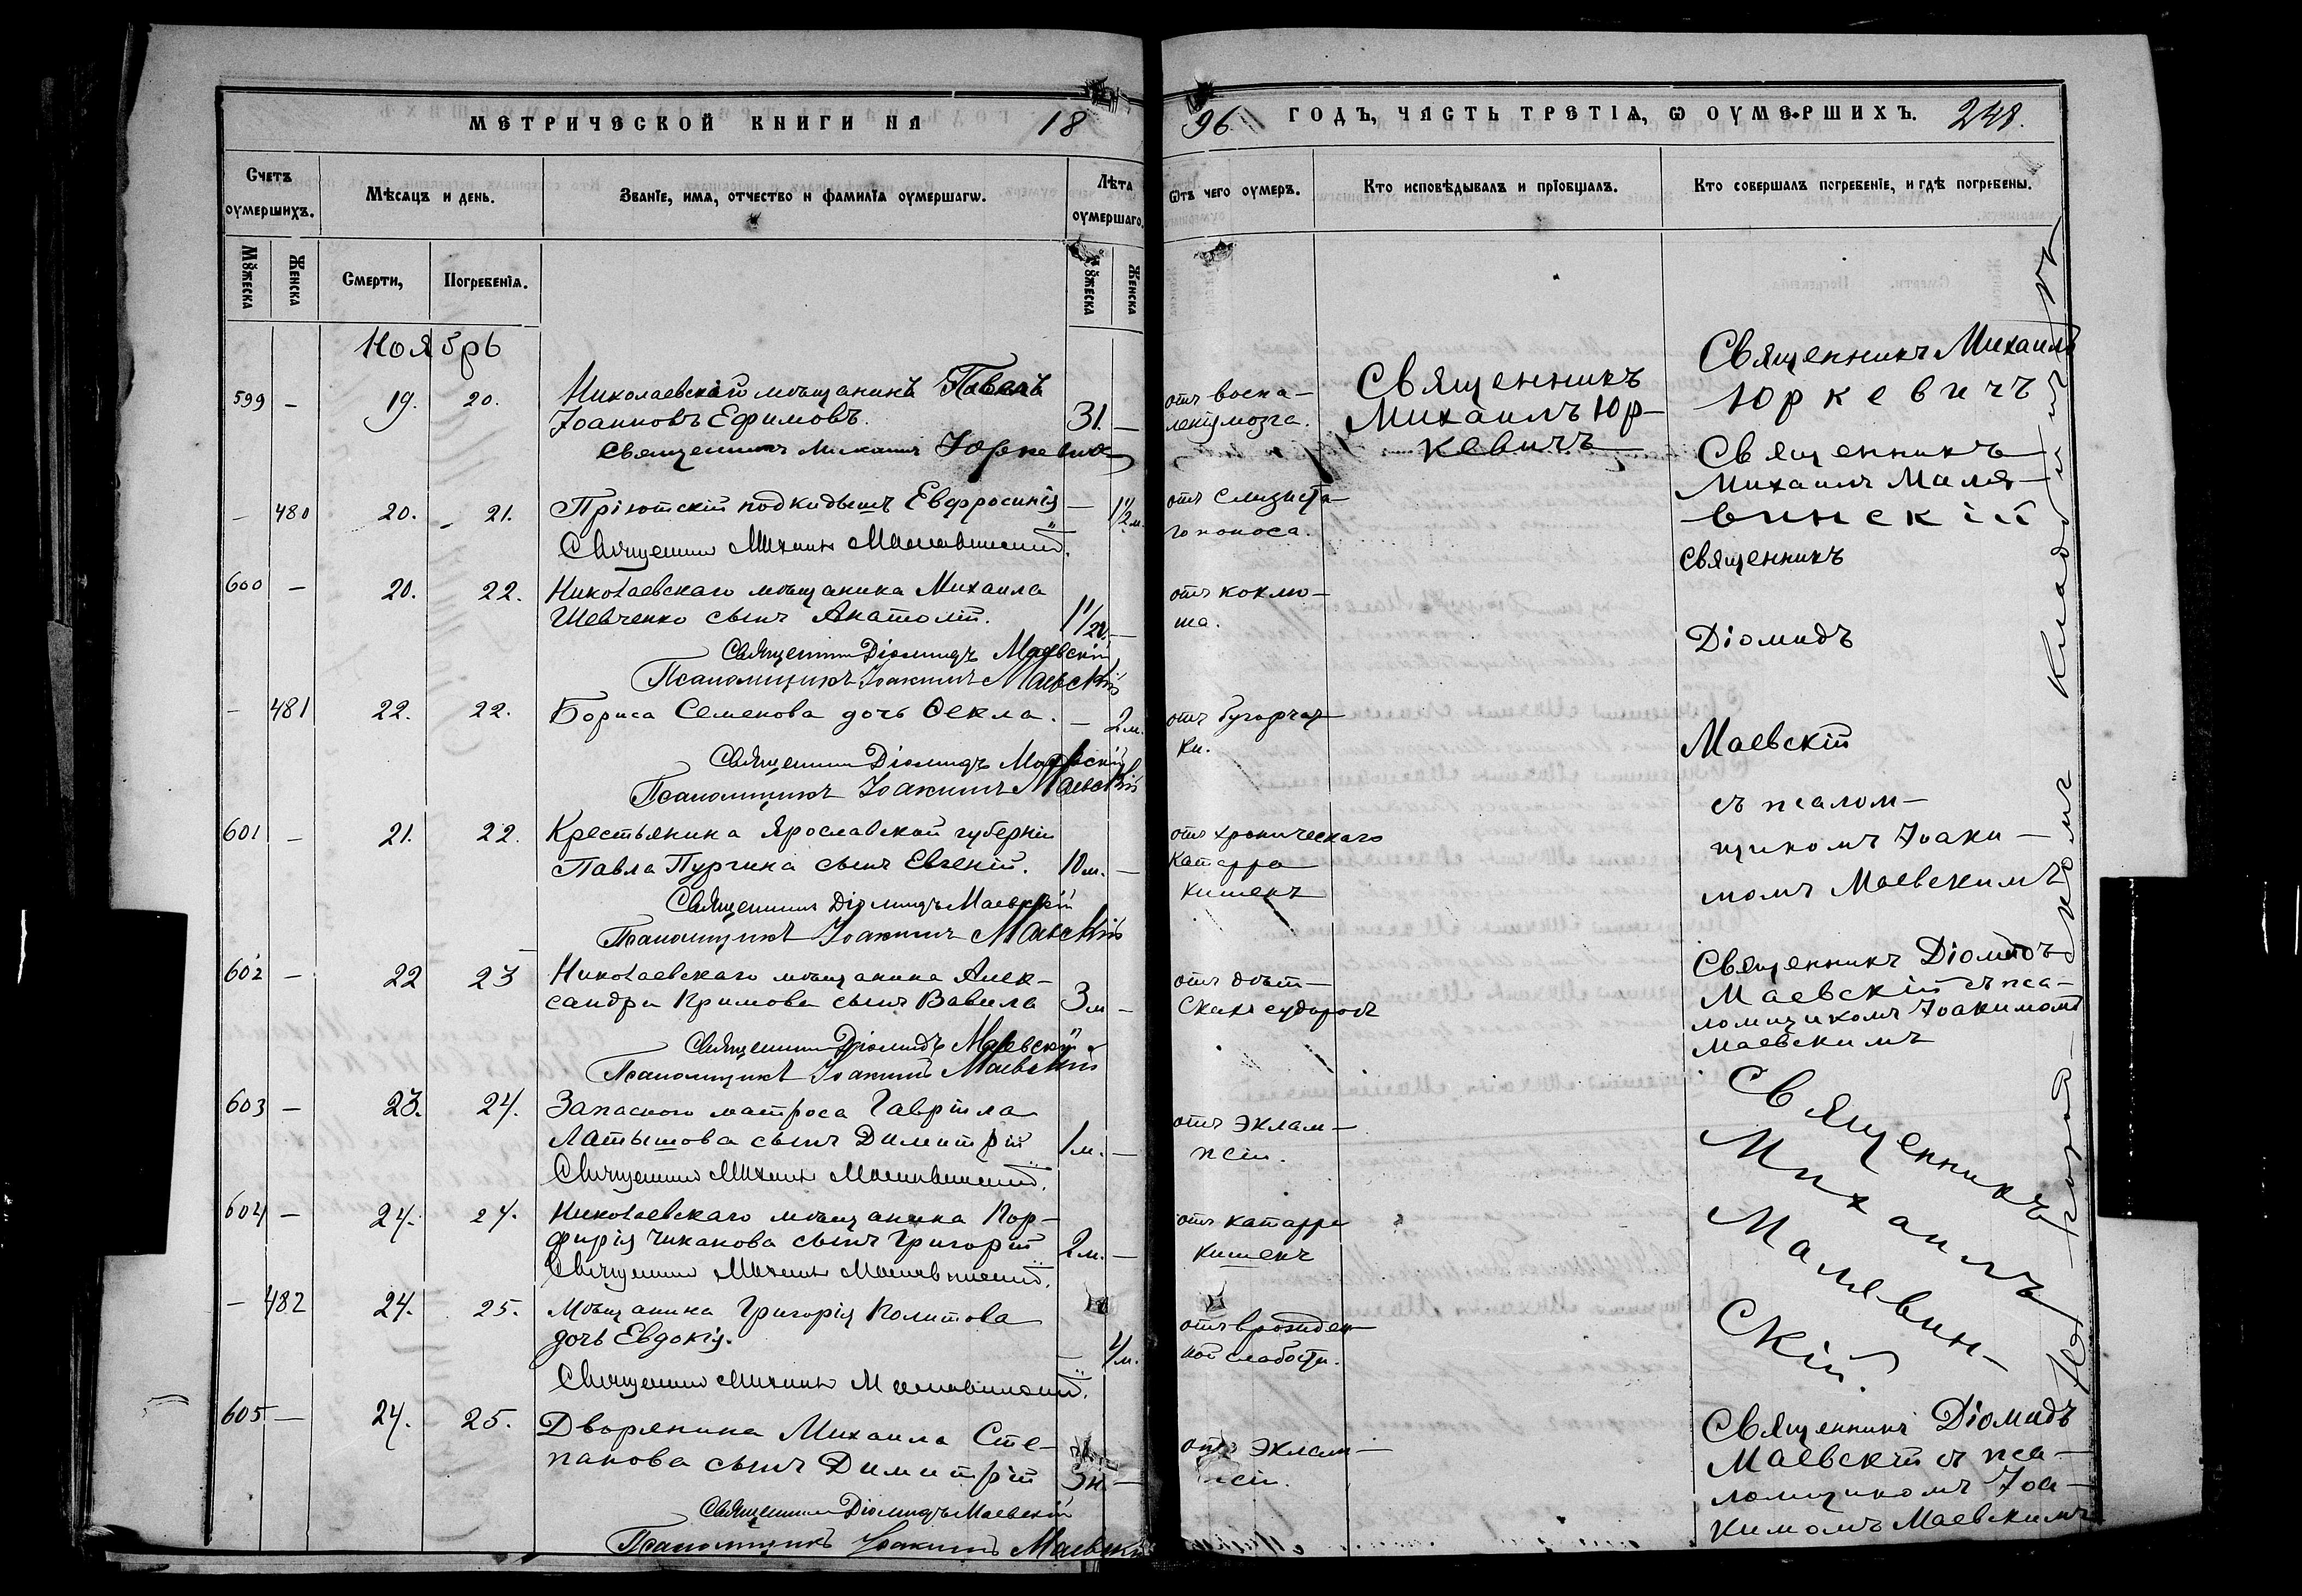 МЕТРИЧЕСКОЙ КНИГИ НА 18
96 ГОДЪ, ЧАСТЬ ТРЕТІѦ, Ѡ ОУМЕРШИХЪ. 248.
Счетъ оумершихъ.
Мѣсѧцъ и день.
Званїе, имѧ, отчество и фамилїѧ оумершагѡ.
Лѣта оумершаго.
Ѿтъ чего оумеръ.
Кто исповѣдывалъ и прїобщалъ.
Кто совершалъ погребенїе, и гдѣ погребены.
Мꙋжеска
Женска
Смерти,
Погребенїѧ.
Мꙋжеска
Женска
Ноябрь
599 — 19. 20. Николаевскій мѣщанинъ Павелъ
Іоанновъ Ефимовъ. 31. —
Священникъ Михаилъ Юркевичъ
отъ воспа-
ленія мозга.
Священникъ
Михаилъ Юр-
кевичъ
Священникъ Михаилъ
Юркевичъ
— 480 20. 21. Пріютскій подкидышъ Евфросинія — 1½ м.
Священникъ Михаилъ Малявинскій.
отъ слизиста-
го поноса.
Священникъ
Михаилъ Маля-
винскій
600 — 20. 22. Николаевскаго мѣщанина Михаила
Шевченко сынъ Анатолій. 1 1/2 —
Священникъ Діомидъ Маевскій
Псаломщикъ Іоакимъ Маевскій
отъ коклю-
ша.
Священникъ
Діомидъ
— 481 22. 22. Бориса Семенова дочь Ѳекла. — 2 м.
Священникъ Діомидъ Маевскій
Псаломщикъ Іоакимъ Маевскій
отъ бугорчат-
ки.
Маевскій
съ псалом-
601 — 21. 22. Крестьянина Ярославской губерніи
Павла Пургина сынъ Евгеній. 10 м. —
Священникъ Діомидъ Маевскій
Псаломщикъ Іоакимъ Маевскій
отъ хроническаго
катарра
кишекъ
щикомъ Іоаки-
момъ Маевскимъ
602 — 22 23 Николаевскаго мѣщанина Алек-
сандра Кримова сынъ Вавила 3 м —
Священникъ Діомидъ Маевскій
Псаломщикъ Іоакимъ Маевскій
отъ дѣт-
скихъ судорогъ
Священникъ Діомидъ
Маевскій съ пса-
ломщикомъ Іоакимомъ
Маевскимъ
603 — 23. 24. Запасного матроса Гавріила
Латышова сынъ Димитрій 1 м. —
Священникъ Михаилъ Малявинскій.
отъ эклам-
псіи.
Священникъ
Михаилъ
Малявин-
скій.
604 — 24. 24. Николаевскаго мѣщанина Пор-
фирія Чиканова сынъ Григорій 2 м. —
Священникъ Михаилъ Малявинскій.
отъ катарра
кишекъ
— 482 24. 25. Мѣщанина Григорія Политова
дочь Евдокія. — ½ м.
Священникъ Михаилъ Малявинскій.
отъ врожден-
ной слабости.
605 — 24. 25. Дворянина Михаила Сте-
панова сынъ Димитрій 3 н. —
Священникъ Діомидъ Маевскій
Псаломщикъ Іоакимъ Маевскій
отъ эклам-
псіи.
Священникъ Діомидъ
Маевскій съ пса-
ломщикомъ Іоа-
кимомъ Маевскимъ
На городскомъ кладбищѣ